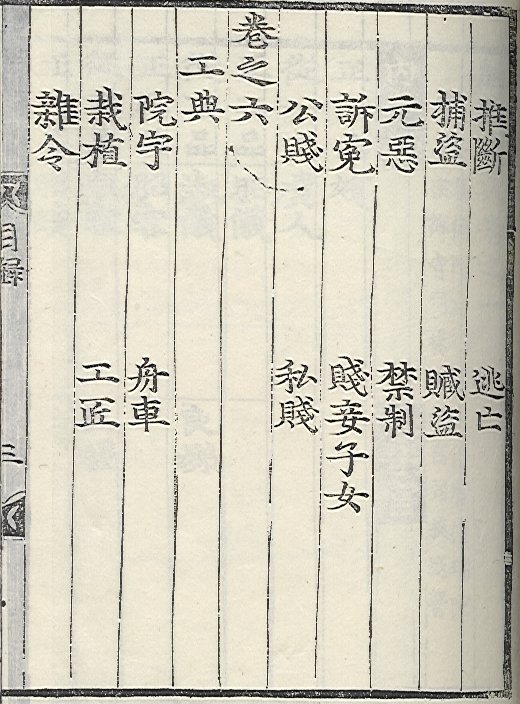 推斷 逃亡
捕盜 贓盜
元惡 禁制
訴冤 賤妾子女
公賤 私賤
卷之六
工典
院宇 舟車
栽植 工匠
雜令
目錄
三